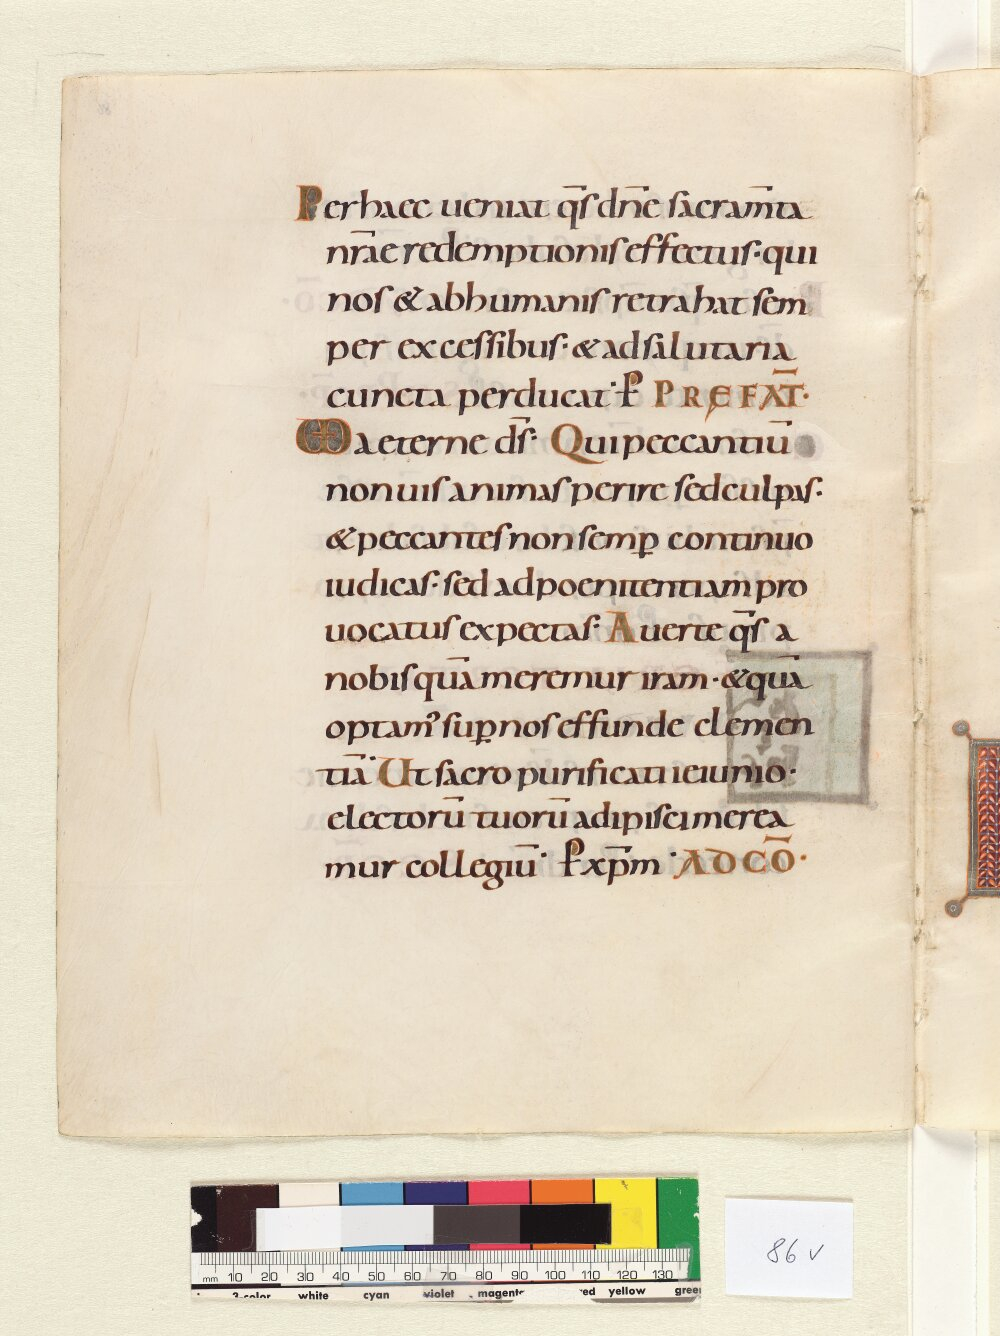 Per haec ueniat q̄s dn̄e sacram̄ta
nr̄ae redemptionis effectus· qui
nos & ab humanis retrahat sem
per excessibus· & ad salutaria
cuncta perducat· ꝑ PREFAT̄·
VD aeterne d̄s· Qui peccantiū
non uis animas perire sed culpas·
& peccantes non semꝑ continuo
iudicas· sed ad poenitentiam pro
uocatus expectas· Auerte q̄s a
nobis quā meremur iram· & quā
optam' suꝑ nos effunde clemen
tiā· Ut sacro purificati ieiunio·
electorū tuorū adipisci merea
mur collegiū· ꝑ xp̄m· AD CŌ·
mm 10 20 30 40 50 60 70 80 90 100 110 120 130
3-color white cyan violet magenta red yellow green
86 v